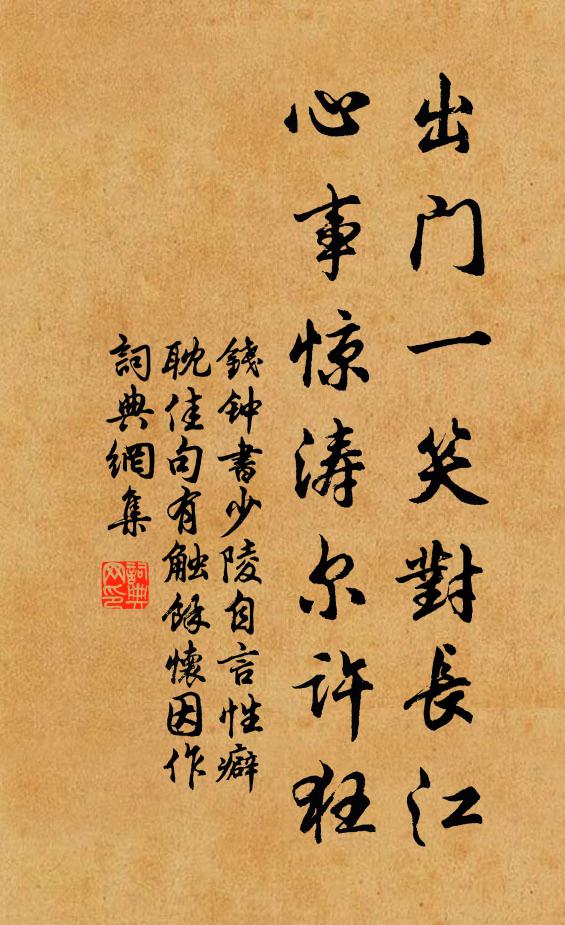 出门一笑對長江
心事惊涛尔许狂
錢钟書少陵自言性癖
耽佳句有触餘懷因作
詞典網集
詞典網印